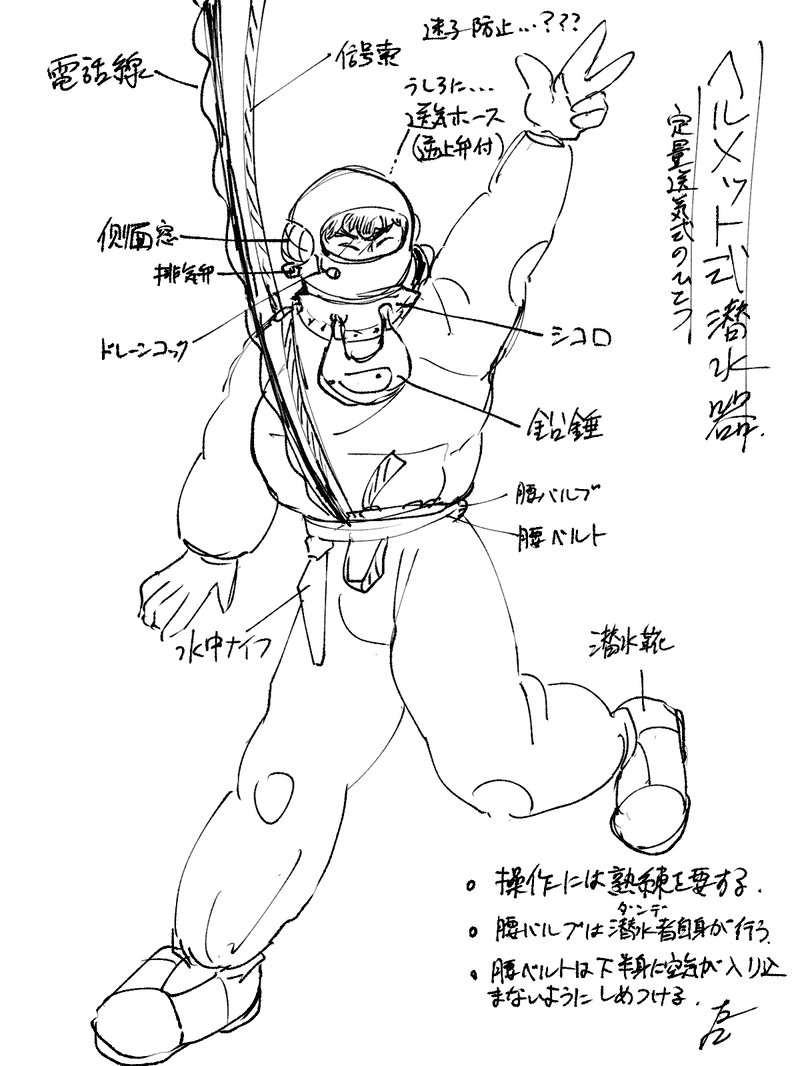 ヘルメット式潜水器
定量送気式のひとつ
迷子防止…???
信号索
電話線
うしろに…
送気ホース
(逆止弁付)
側面窓
排気弁
ドレーンコック
シコロ
鉛錘
腰バルブ
腰ベルト
水中ナイフ
潜水靴
。操作には熟練を要する.
ダンデ
。腰バルブは潜水者自身が行う.
。腰ベルトは下半身に空気が入り込
まないようにしめつける.